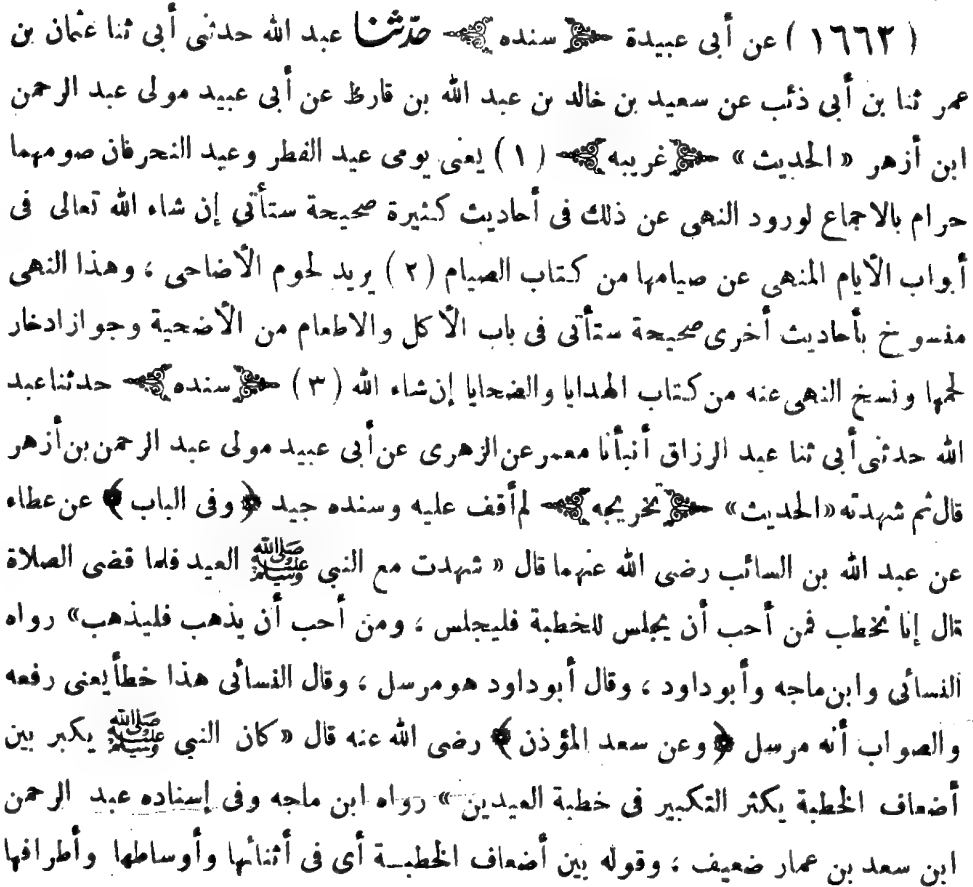 ( ١٦٦٣ ) عن أبى عبيدة ﴿ سنده ﴾ حدّثنا عبد الله حدثنى أبى ثنا عثمان بن
عمر ثنا بن أبى ذئب عن سعيد بن خالد بن عبد الله بن قارظ عن أبى عبيد مولى عبد الرحمن
ابن أزهر « الحديث » ﴿ غريبه ﴾ ( ١ ) يعنى يومى عيد الفطر وعيد النحر فان صومهما
حرام بالاجماع لورود النهى عن ذلك فى أحاديث كثيرة صحيحة ستأتي إن شاء الله تعالى فى
أبواب الأيام المنهى عن صيامها من كتاب الصيام ( ٢ ) يريد لحوم الأضاحى ، وهذا النهى
منسوخ بأحاديث أخرى صحيحة ستأتى فى باب الأكل والاطعام من الأضحية وجواز ادخار
لحمها ونسخ النهى عنه من كتاب الهدايا والضحايا إن شاء الله ( ٣ ) ﴿ سنده ﴾ حدثنا عبد
الله حدثنى أبى ثنا عبد الرزاق أنبأنا معمر عن الزهرى عن أبى عبيد مولى عبد الرحمن بن أزهر
قال ثم شهدته « الحديث » ﴿ تخريجه ﴾ لم أقف عليه وسنده جيد ﴿ وفى الباب ﴾ عن عطاء
عن عبد الله بن السائب رضى الله عنهما قال « شهدت مع النبى ﷺ العيد فلما قضى الصلاة
قال إنا نخطب فمن أحب أن يجلس للخطبة فليجلس ، ومن أحب أن يذهب فليذهب » رواه
النسائى وابن ماجه وأبو داود ، وقال أبو داود هو مرسل ، وقال النسائى هذا خطأ يعنى رفعه
والصواب أنه مرسل ﴿ وعن سعد المؤذن ﴾ رضى الله عنه قال « كان النبى ﷺ يكبر بين
أضعاف الخطبة يكثر التكبير فى خطبة العيدين » رواه ابن ماجه وفى إسناده عبد الرحمن
ابن سعد بن عمار ضعيف ، وقوله بين أضعاف الخطبة أى فى أثنائها وأوساطها وأطرافها